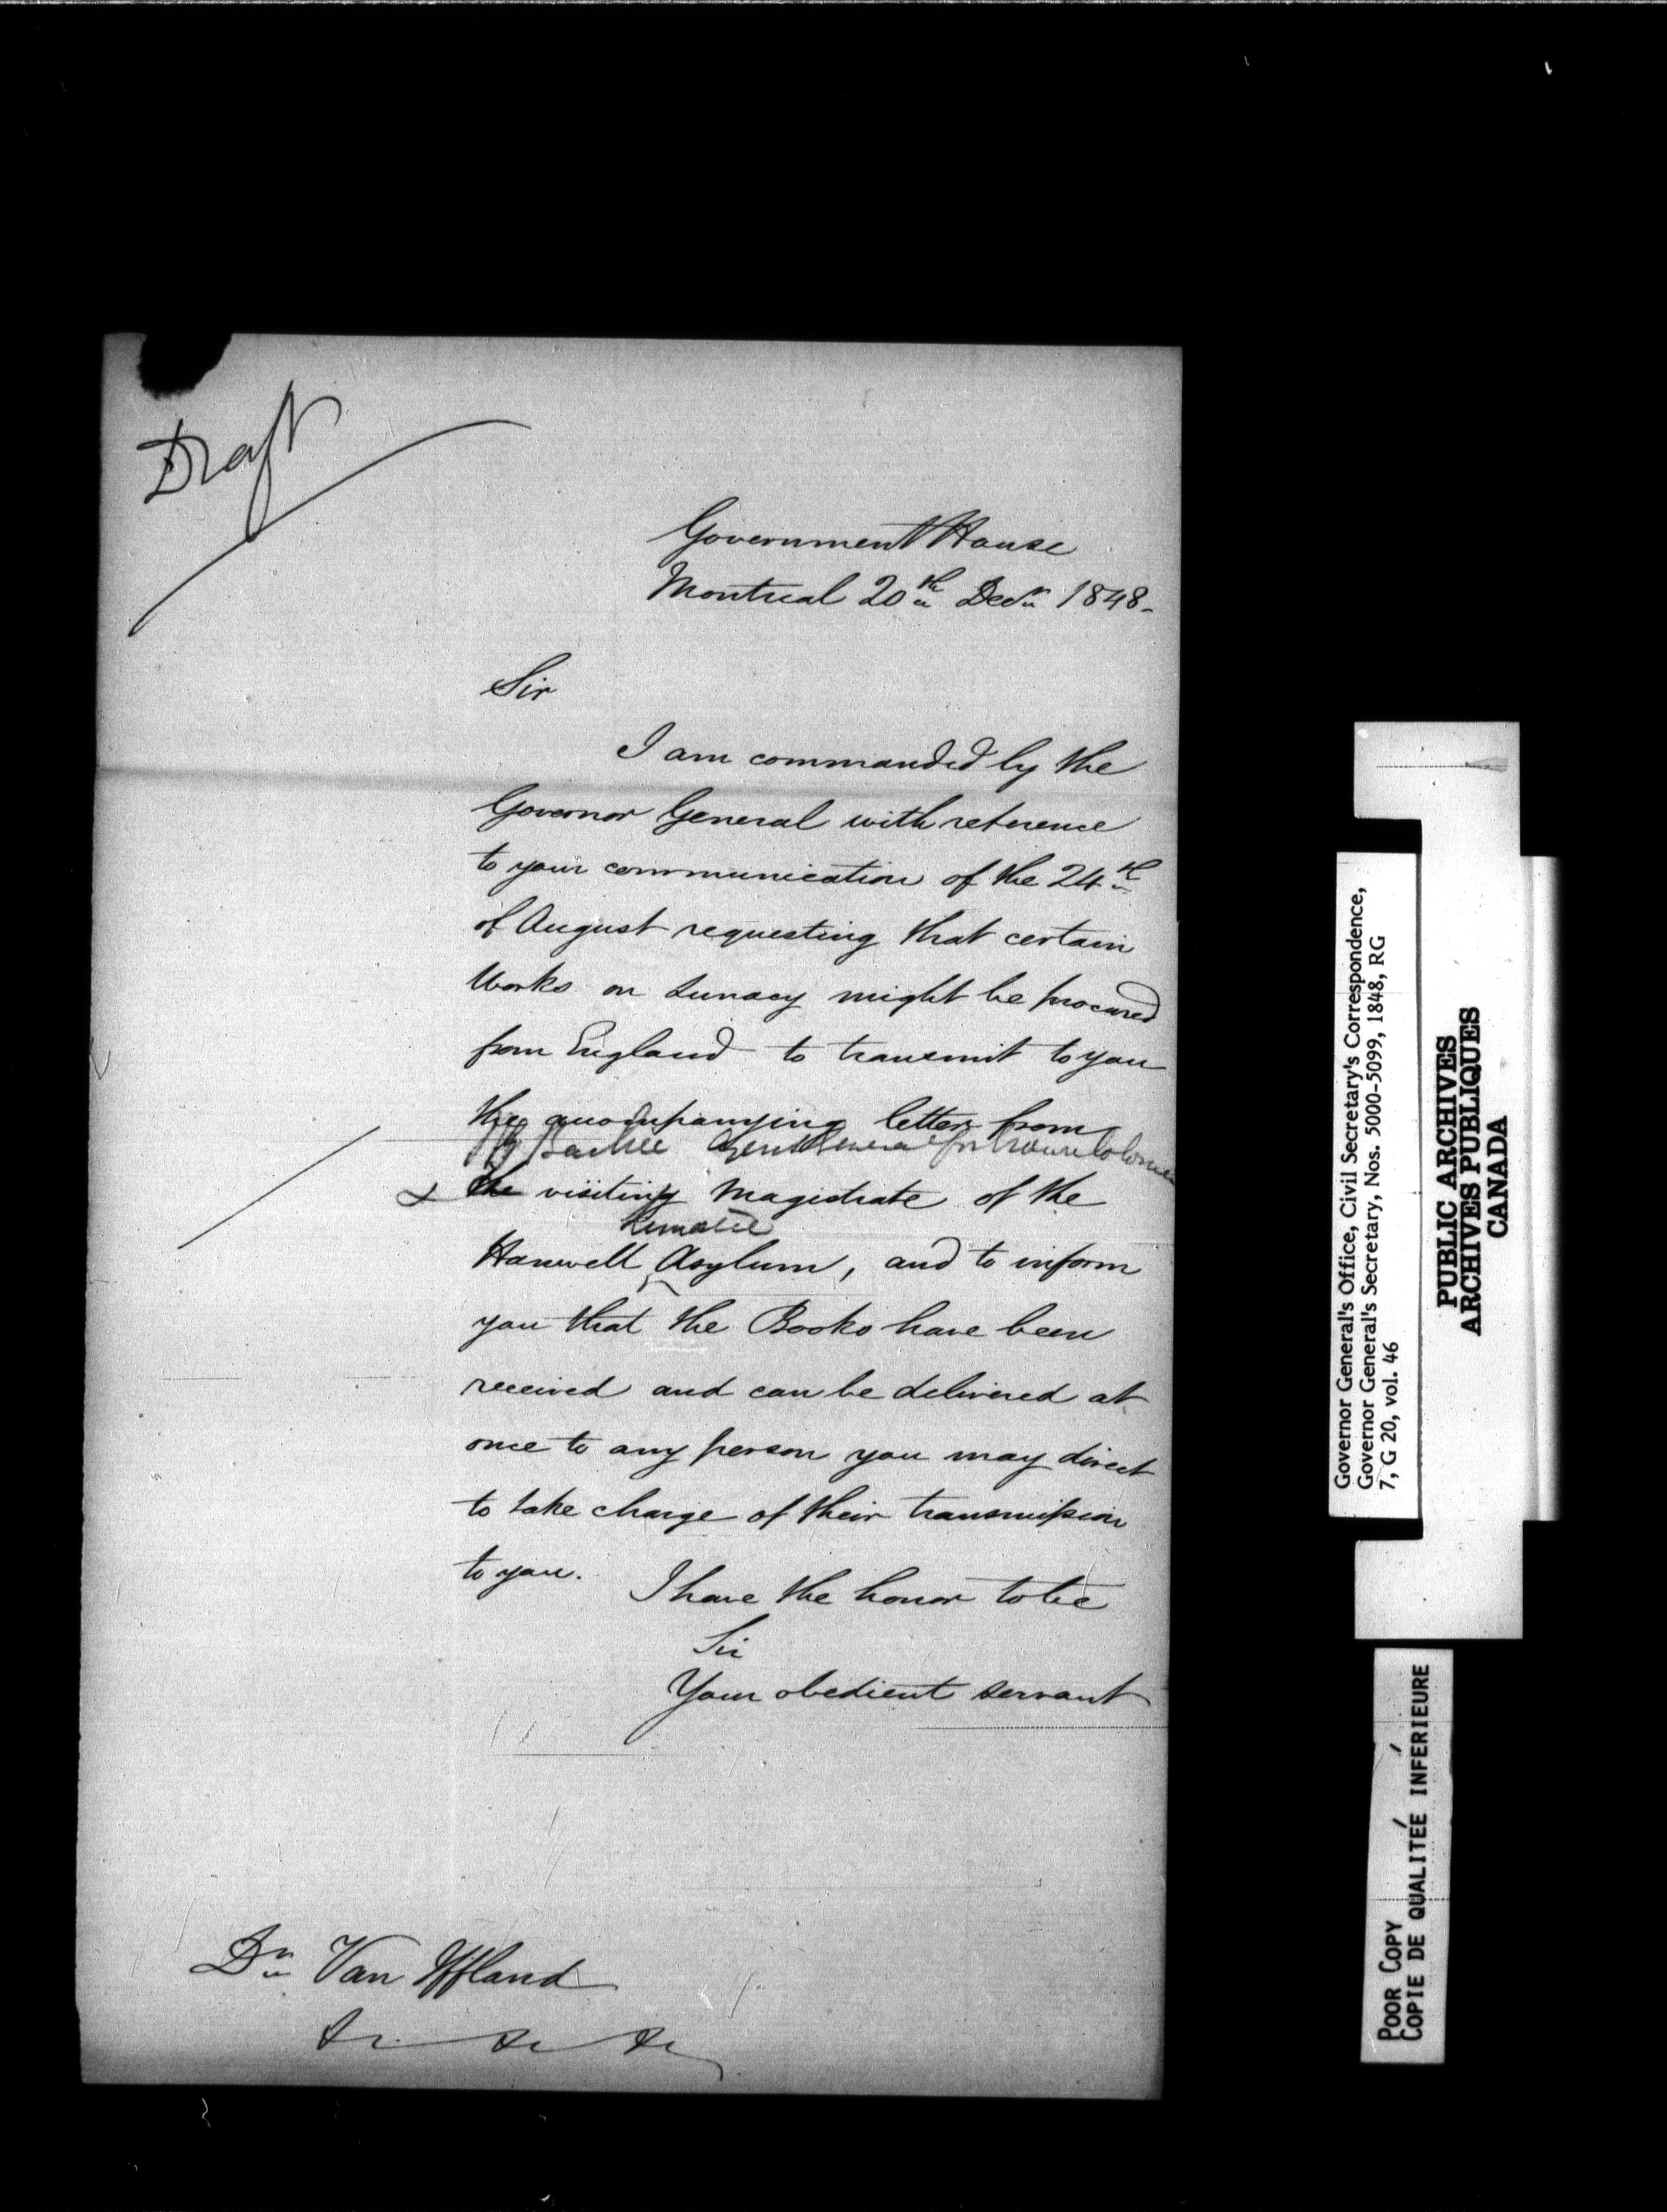 Draft
Government House
Montreal 20th Decr 1848-
Sir
I am commanded by the
Governor General with reference
to your communication of the 24th
of August requesting that certain
Works on Lunacy might be procured
from England to transmit to you
the accompanying letters from
Agent General for Crown Colonies
& the visiting Magistrate of the
Lunatic
Hanwell Asylum, and to inform
you that the Books have been
received and can be delivered at
once to any person you may direct
to take charge of their transmission
to you.
I have the honor to be
Sir
Your obedient servant
Dr Van Iffland
&c &c &c
Governor General's Office, Civil Secretary's Correspondence,
Governor General's Secretary, Nos. 5000-5099, 1848, RG
7, G 20, vol. 46
PUBLIC ARCHIVES
ARCHIVES PUBLIQUES
CANADA
POOR COPY
COPIE DE QUALITÉE INFÉRIEURE